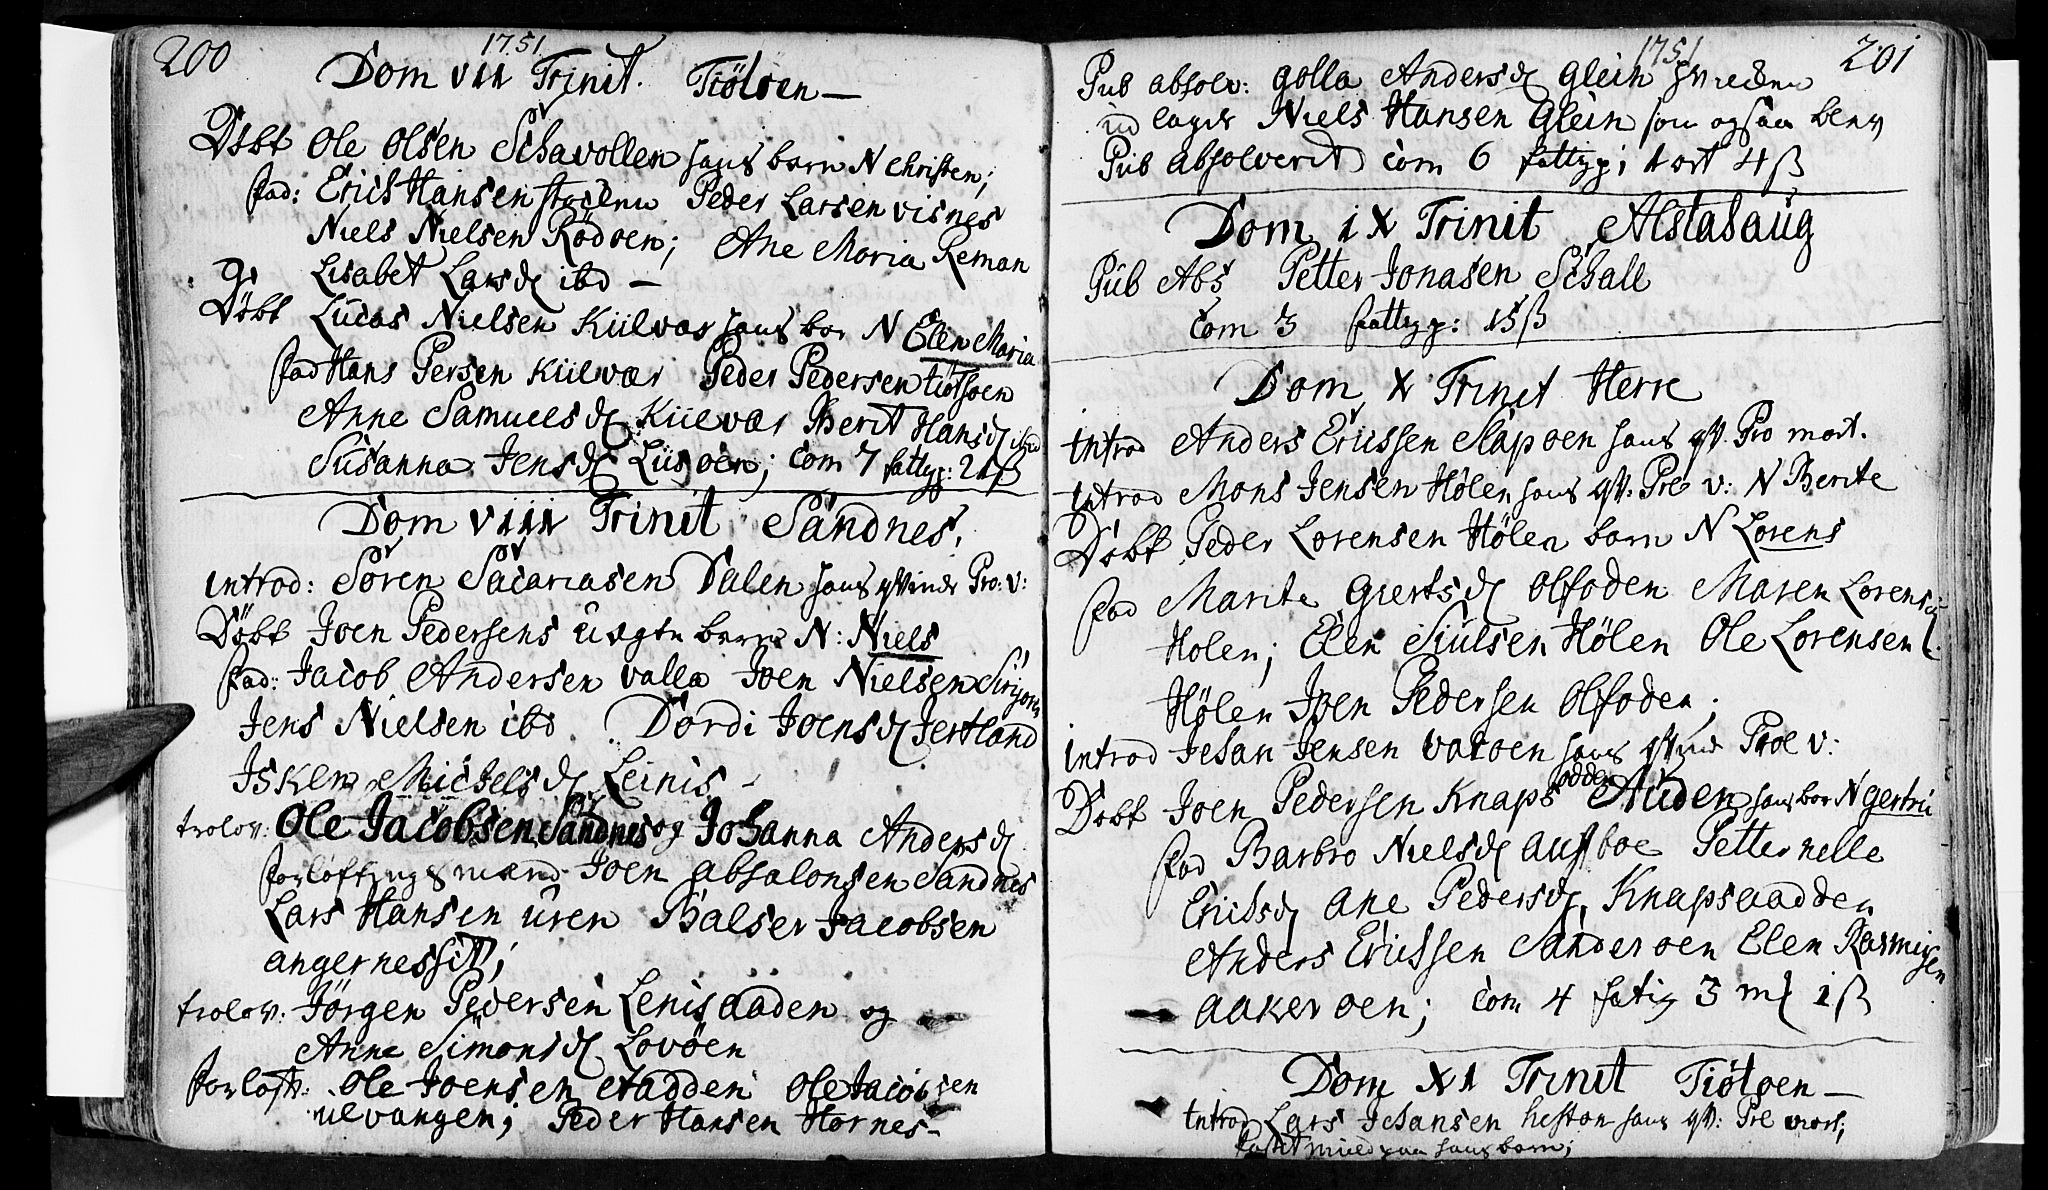 200
1751
Dom VII Trinit. Tiötöen —
Döbt Ole Olsen Schavollen hans barn N Christen;
fad: Erich Hansen Peder Larsen Visnes
Niels Nielsen Rödöen; Ane Maria Reman
Lisabet Larsd ibd —
Döbt Lucas Nielsen Kiilvær hans bar N Elen Maria
fad Hans Persen Kiilvær Peder Pedersen tiötöen
Anne Samuelsd Kiilvær Berit Hansd ibid
Susanna Jensd Lüsöen; Com 7 fattigp: 21 ß
Dom VIII Trinit Sandnes.
introd: Sören Sacariasen Dalen hans qvinde Pro: v:
Döbt Joen Pedersens uægte barn N: Niels
fad: Jacob Andersen valla Joen Nielsen
Jens Nielsen ibd Dordi Joensd Jertland
Michelsd Leinis —
trolov: Ole Jacobsen Sandnes og Johanna Andersd
forløftningsmænd Joen absalonsen Sandnes
Lars Hansen üren Balser Jacobsen
angernessit;
trolov: Jörgen Pedersen Lenisaaden og
Anne Simonsd Lovöen
forlöft: Ole Joensen Aadden Ole Jacobsen
ulvangen; Peder Hansen Hornes —
1751
201
Pub absolv: golla Andersd glein
ud Niels Hansen Glein som ogsaa blev
Pub absolverit Com 6 fattigp: 1 ort 4 ß
Dom IX Trinit Alstahaug
Pub Abs Petter Jonasen Schall
Com 3 fattigp: 15 ß
Dom X Trinit Herre
introd Anders Erichsen Slapöen hans qv: Pro mort.
introd Mons Jensen Hölen hans qv: Pro v: N Berite
Döbt Peder Lorensen Hölen barn N Lorens
fad Marite Giertsd Olfoden Maren Lorensd
Holen; Elen Siulsen Hölen Ole Lorensen
Hölen Joen Pedersen Olfoden;
introd Jehan Jensen Varöen hans qvind Prol v:
Döbt Joen Pedersen Knaps odden Auden hans bar N gertru
fad Barbro Nielsd Austboe Petternelle
Erichsd Ane Pedersd. Knapsaadden
Anders Erichsen Sanderöen Elen Rasmusen
aakeröen; Com 4 fatig 3 mk 1 ß
Dom XI Trinit Tiötöen —
introd Lars Jehansen heston hans qv: Pro mort;
Kastet muld paa hans barn;